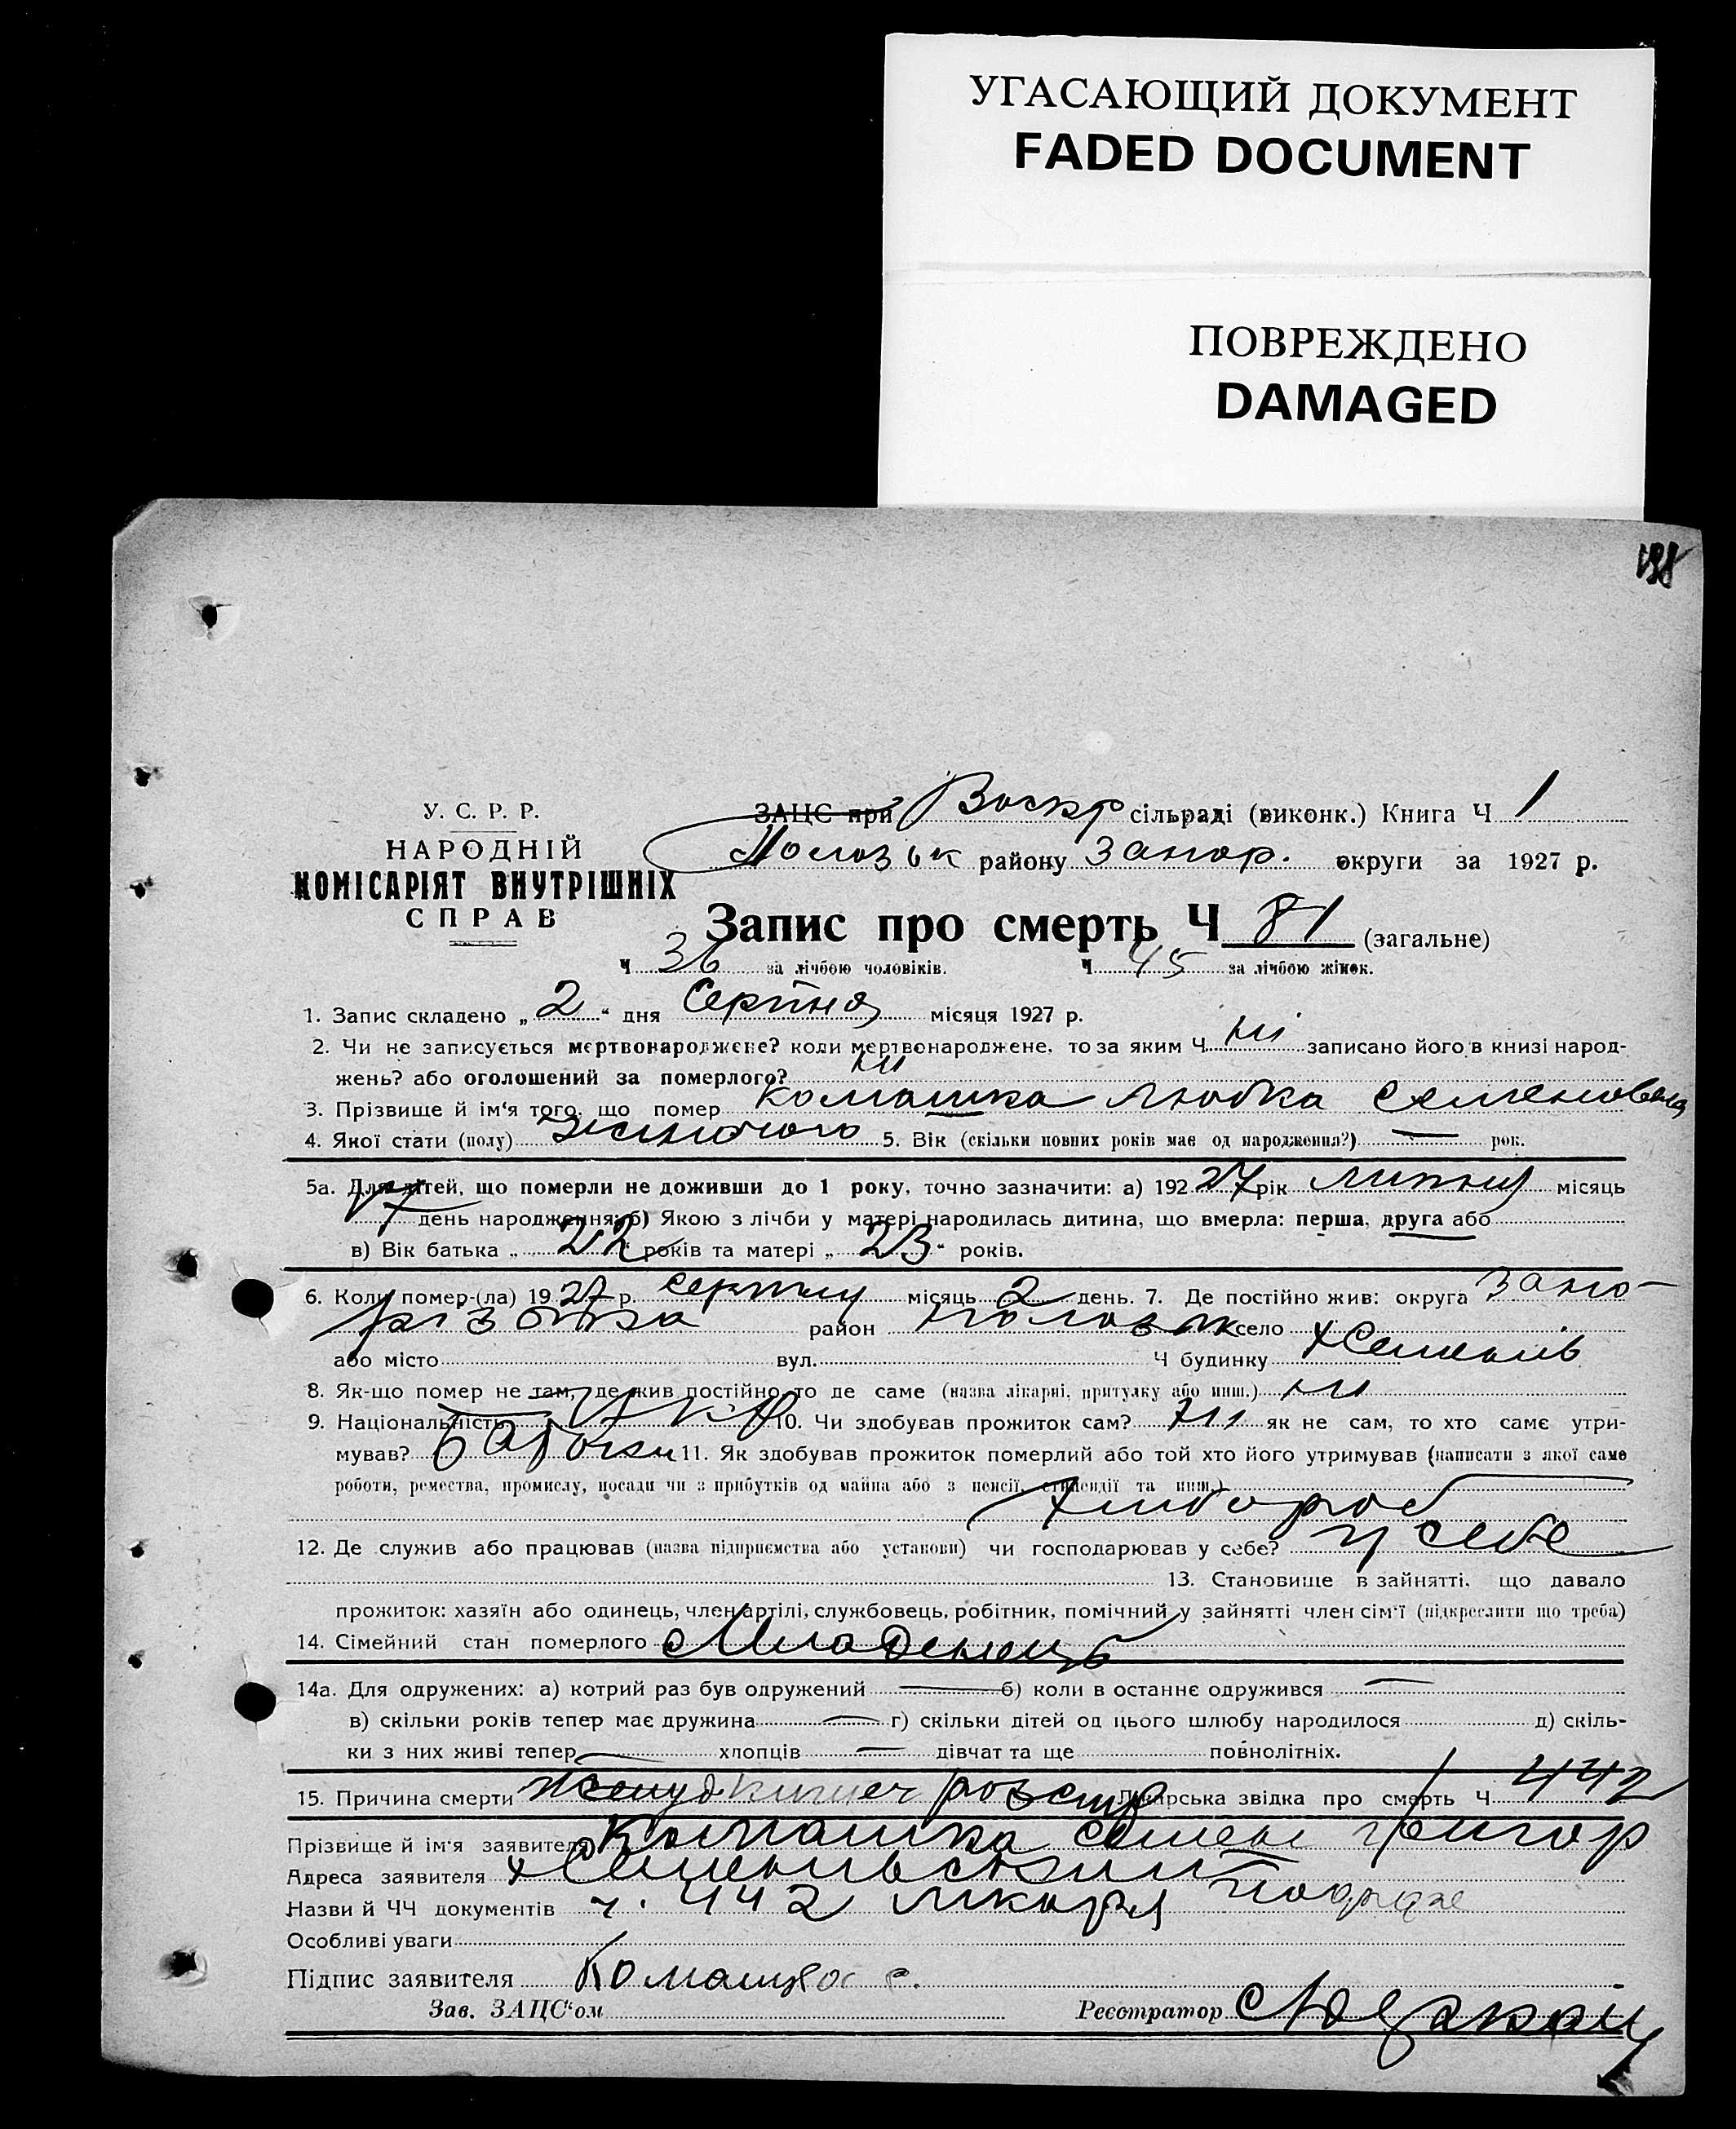 УГАСАЮЩИЙ ДОКУМЕНТ
FADED DOCUMENT
ПОВРЕЖДЕНО
DAMAGED
198
У. С. Р. Р.
НАРОДНІЙ
КОМІСАРІЯТ ВНУТРІШНІХ
СПРАВ
ЗАЦС при Воскр сільраді (виконк.) Книга Ч 1
району Запор. округи за 1927 р.
Запис про смерть Ч 81 (загальне)
Ч 36 за лічбою чоловіків. Ч 45 за лічбою жінок.
1. Запис складено „ 2 “ дня Серпня місяця 1927 р.
2. Чи не записується мертвонароджене? коли мертвонароджене, то за яким Ч ні записано його в книзі народ-
жень? або оголошений за померлого? ні
3. Прізвище й ім'я того, що помер Комашка Любка Семеновна
4. Якої стати (полу) Жіночого 5. Вік (скільки повних років має од народження?) — рок.
5а. Для дітей, що померли не доживши до 1 року, точно зазначити: а) 192 27 рік липня місяць
17 день народження; б) Якою з лічби у матері народилась дитина, що вмерла: перша, друга або
в) Вік батька „ 22 “ років та матері „ 23 “ років.
6. Коли помер-(ла) 19 27 р. серпня місяць 2 день. 7. Де постійно жив: округа Запо-
різька район Пологськ село
або місто вул. Ч будинку х Семенів
8. Як-що помер не там, де жив постійно, то де саме (назва лікарні, притулку або инш.) ні
9. Національність Укр 10. Чи здобував прожиток сам? ні як не сам, то хто саме утри-
мував? Батьки 11. Як здобував прожиток померлий або той хто його утримував (написати з якої саме
роботи, ремества, промислу, посади чи з прибутків од майна або з пенсії, стипендії та инш.)
Хлібороб
12. Де служив або працював (назва підприємства або установи) чи господарював у себе? у себе
13. Становище в зайнятті, що давало
прожиток: хазяїн або одинець, член артілі, службовець, робітник, помічний у зайнятті член сім'ї (підкреслити що треба)
14. Сімейний стан померлого Младенець
14а. Для одружених: а) котрий раз був одружений — б) коли в останнє одружився —
в) скільки років тепер має дружина — г) скільки дітей од цього шлюбу народилося д) скіль-
ки з них живі тепер — хлопців — дівчат та ще повнолітніх.
15. Причина смерти желудкишеч розстр Лікарська звідка про смерть Ч 442
Прізвище й ім'я заявителя Комашка Семен Григор
Адреса заявителя х Семенівський
Назви й ЧЧ документів ч. 442 лікаря
Особливі уваги
Підпис заявителя Комашка с.
Зав. ЗАЦС“ом Реєстратор